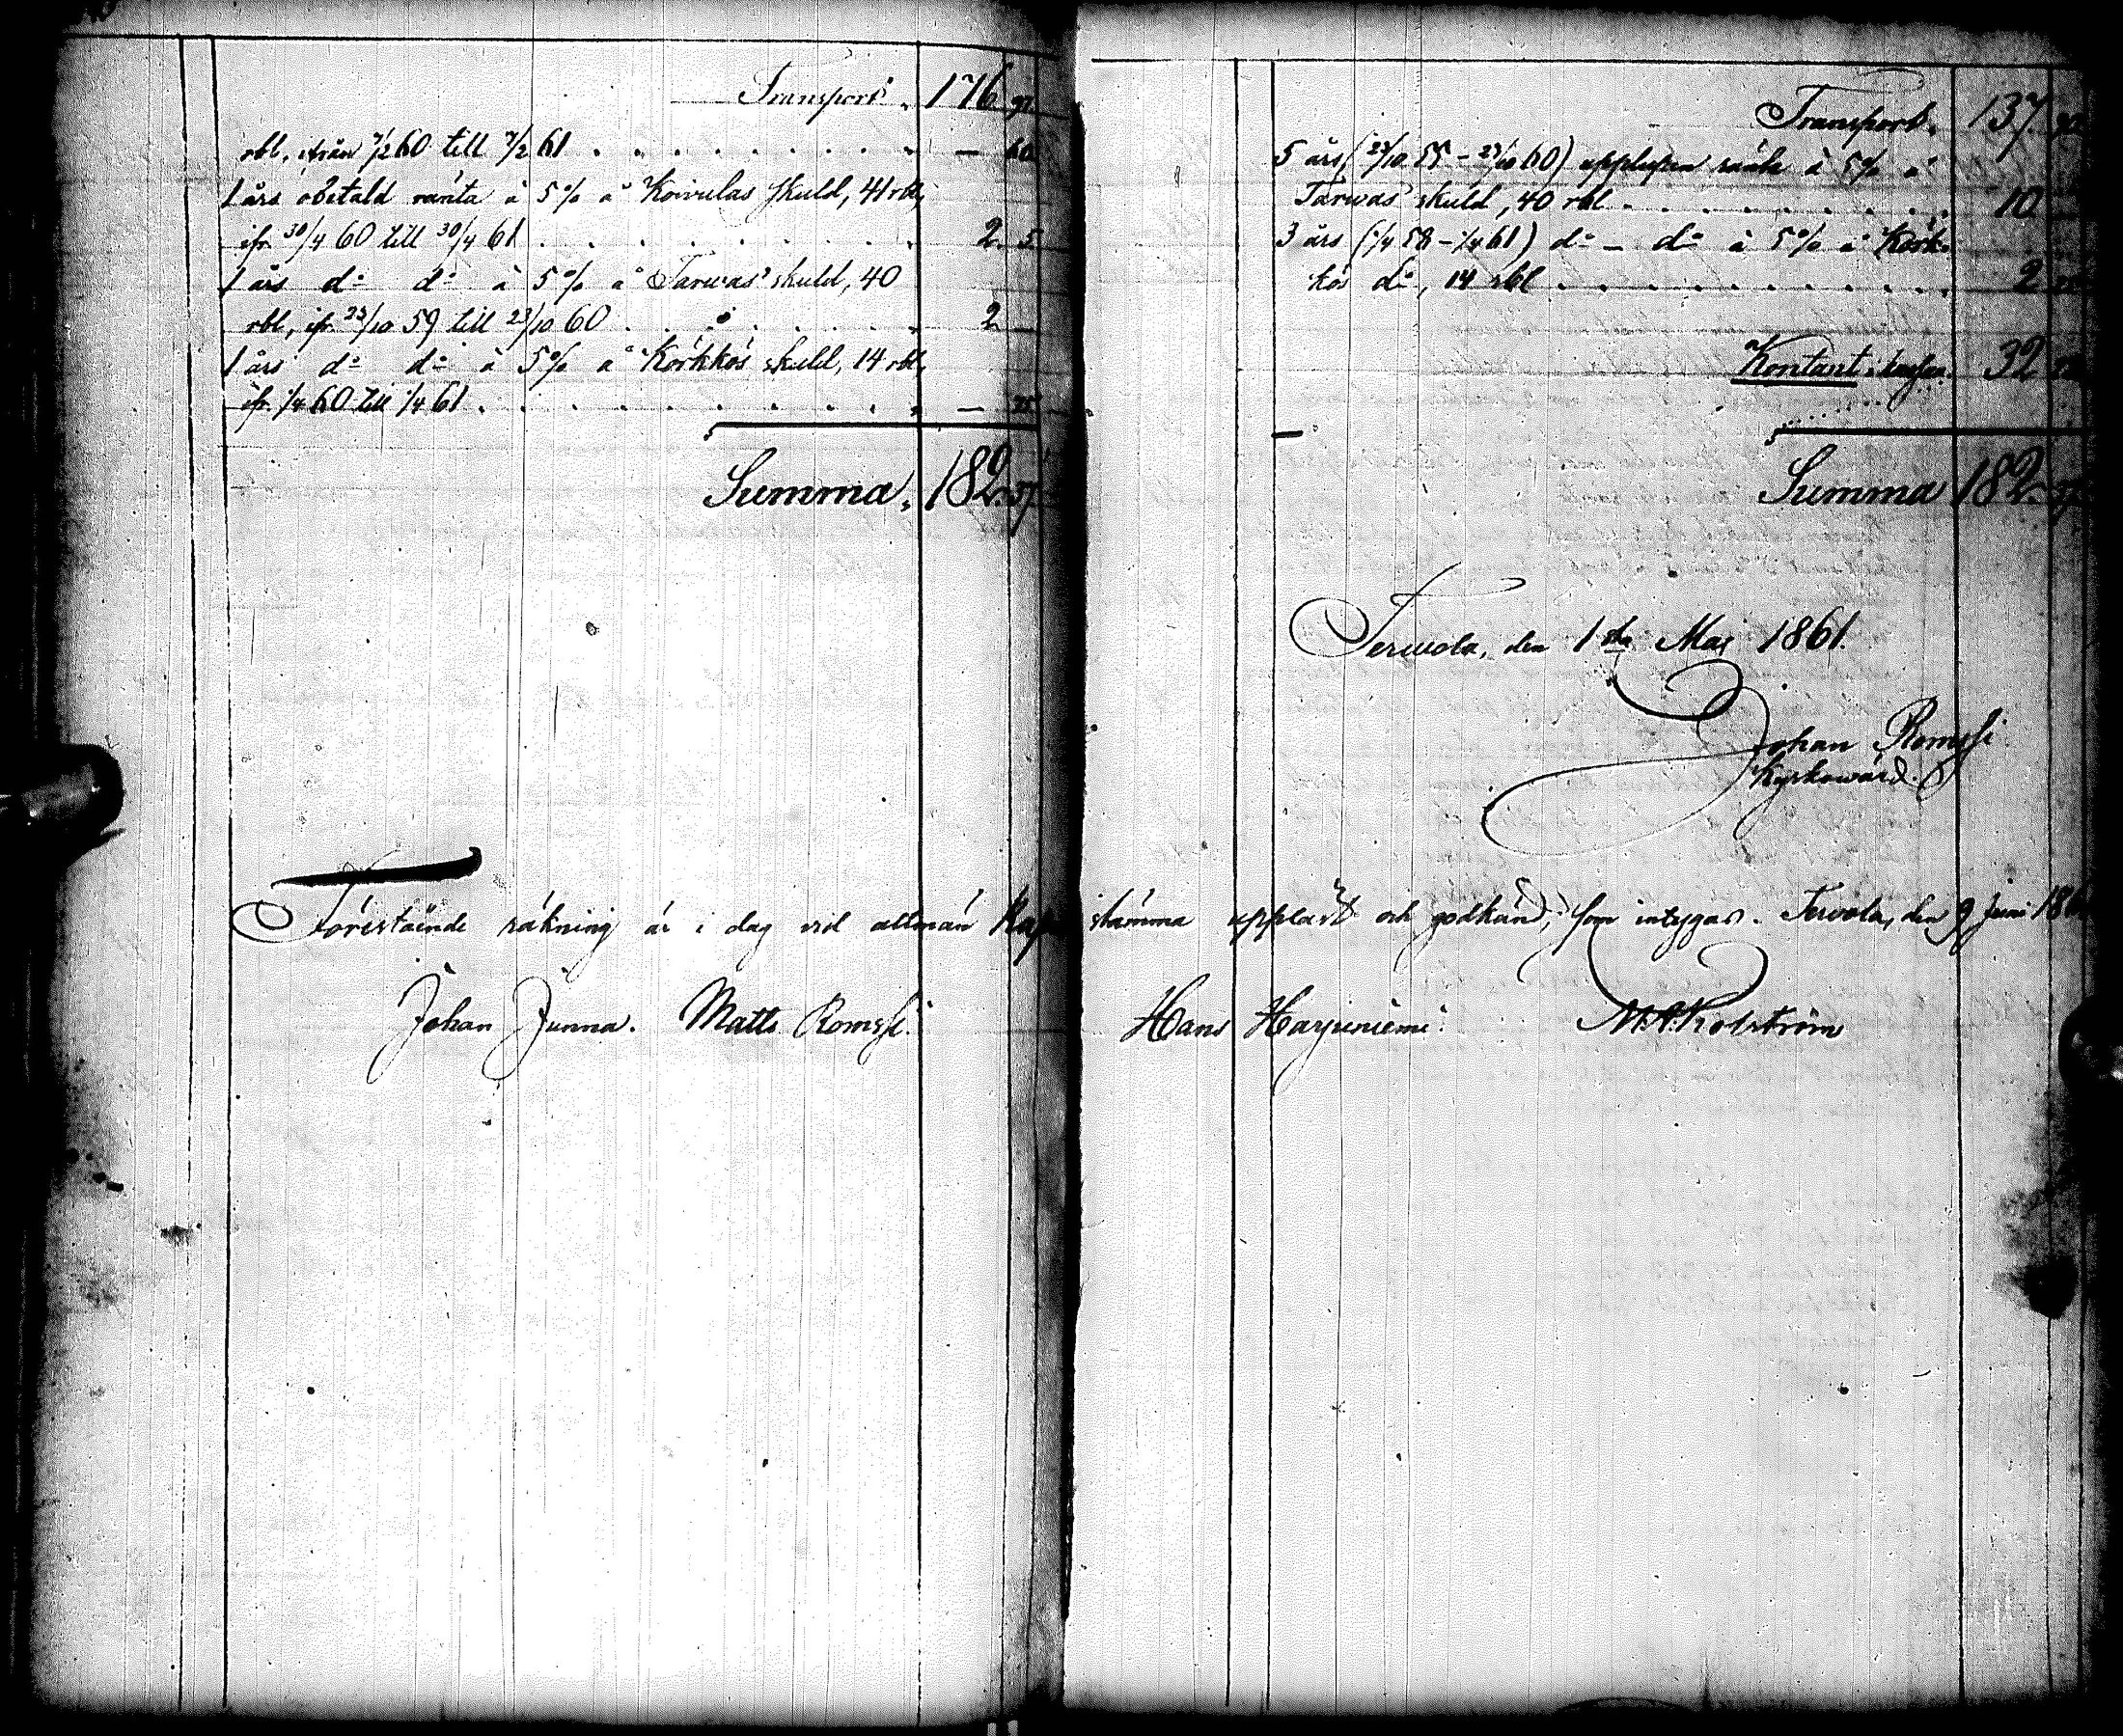 Transport. 176 97
rbl, ifrån 7/2 60 till 7/2 61 . . . . . . . . — 60
1 års obetald ränta à 5% å Koivulas skuld, 41 rbl,
ifr. 30/4 60 till 30/4 61 . . . . . . . . 2. 5
1 års d:o d:o à 5% å Tarwas' skuld, 40
rbl, ifr. 23/10 59 till 23/10 60 . . . . . . . 2 —
1 års d:o d:o à 5% å Körkkös skuld, 14 rbl,
ifr. 1/4 60 till 1/4 61 . . . . . . . . — 75
Summa. 182. 37
Transport. 137
5 års (23/10 55 – 23/10 60) upplupen ränta à 5% å
Tarwas' skuld, 40 rbl . . . . . . . . 10
3 års (1/4 58 – 1/4 61) d:o – d:o à 5% å Körk-
kös d:o, 14 rbl . . . . . . . . . . 2
Kontant i kassan. 32
Summa 182. 37
Terwola, den 1sta Maj 1861.
Johan Romssi
Kyrkowärd.
Förestående räkning är i dag vid allmän stämma uppläst och godkänd; som intygas. Tervola, den 9 Juni
Johan Junna. Matts Romssi. Hans Harjuniemi.